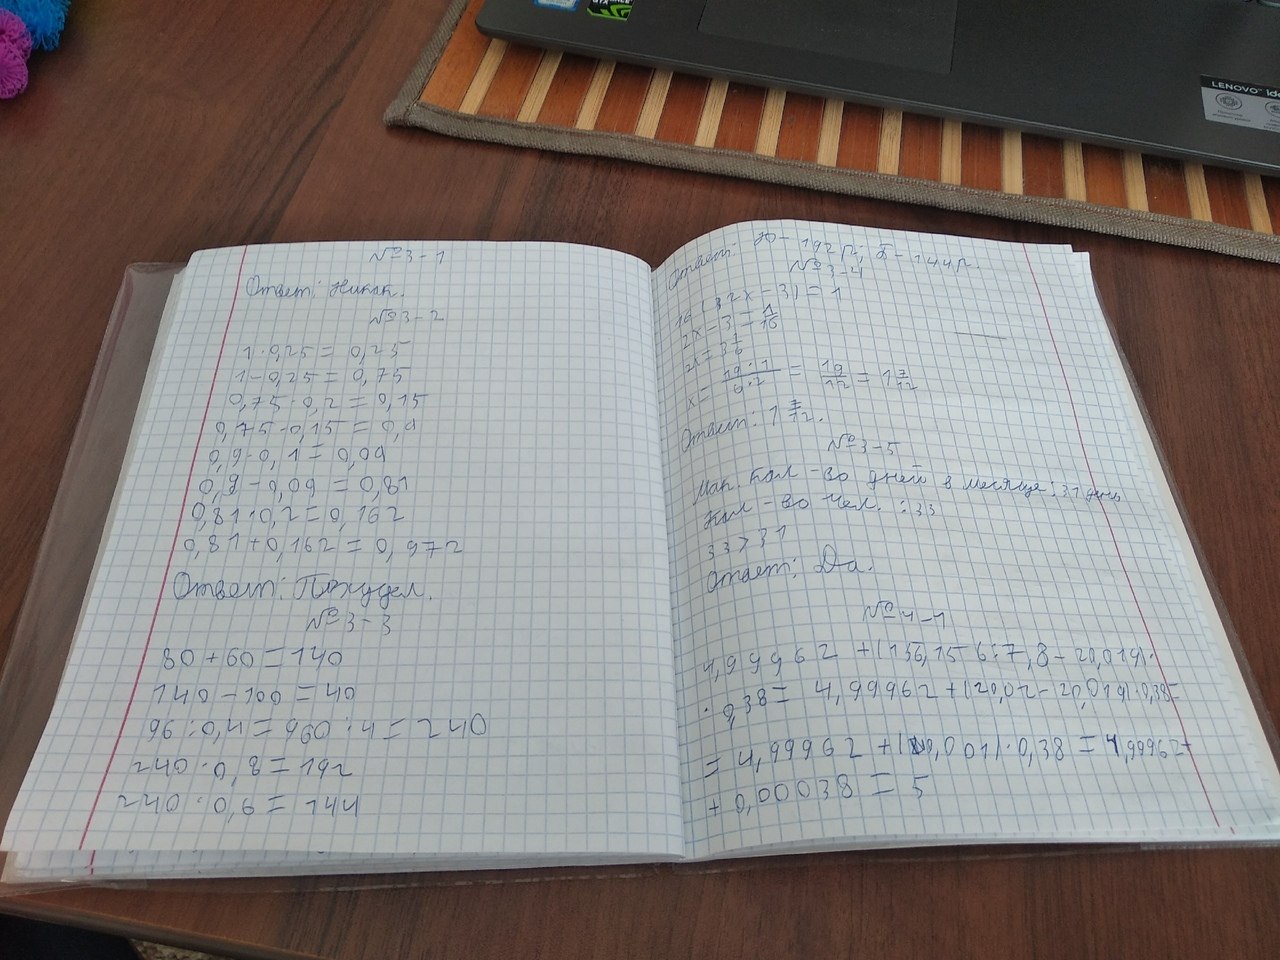 №3-1
Ответ: Никак.
№3-2
1·0,25=0,25
1-0,25=0,75
0,75·0,2=0,15
0,75·0,15=0,9
0,9·0,1=0,09
0,9-0,09=0,81
0,81·0,2=0,162
0,81+0,162=0,972
Ответ: Похудел.
№3-3
80+60=140
140-100=40
96:0,4=960:4=240
240·0,8=192
240·0,6=144
Ответ: Ю-192р; Б-144р.
№3-4
2x-3=1/16
2x=3 1/6
x=19·1/6·2=19/12=1 7/12
Ответ: 1 7/12.
№3-5
Мак. кол-во дней в месяце: 31 день
Кол-во чел.: 33
33>31
Ответ: Да.
№4-1
4,99962+(156,156:7,8-20,019)·
·0,38=4,99962+(20,02-20,019)·0,38=
=4,99962+(0,001)·0,38=4,99962+
+0,00038=5
LENOVO